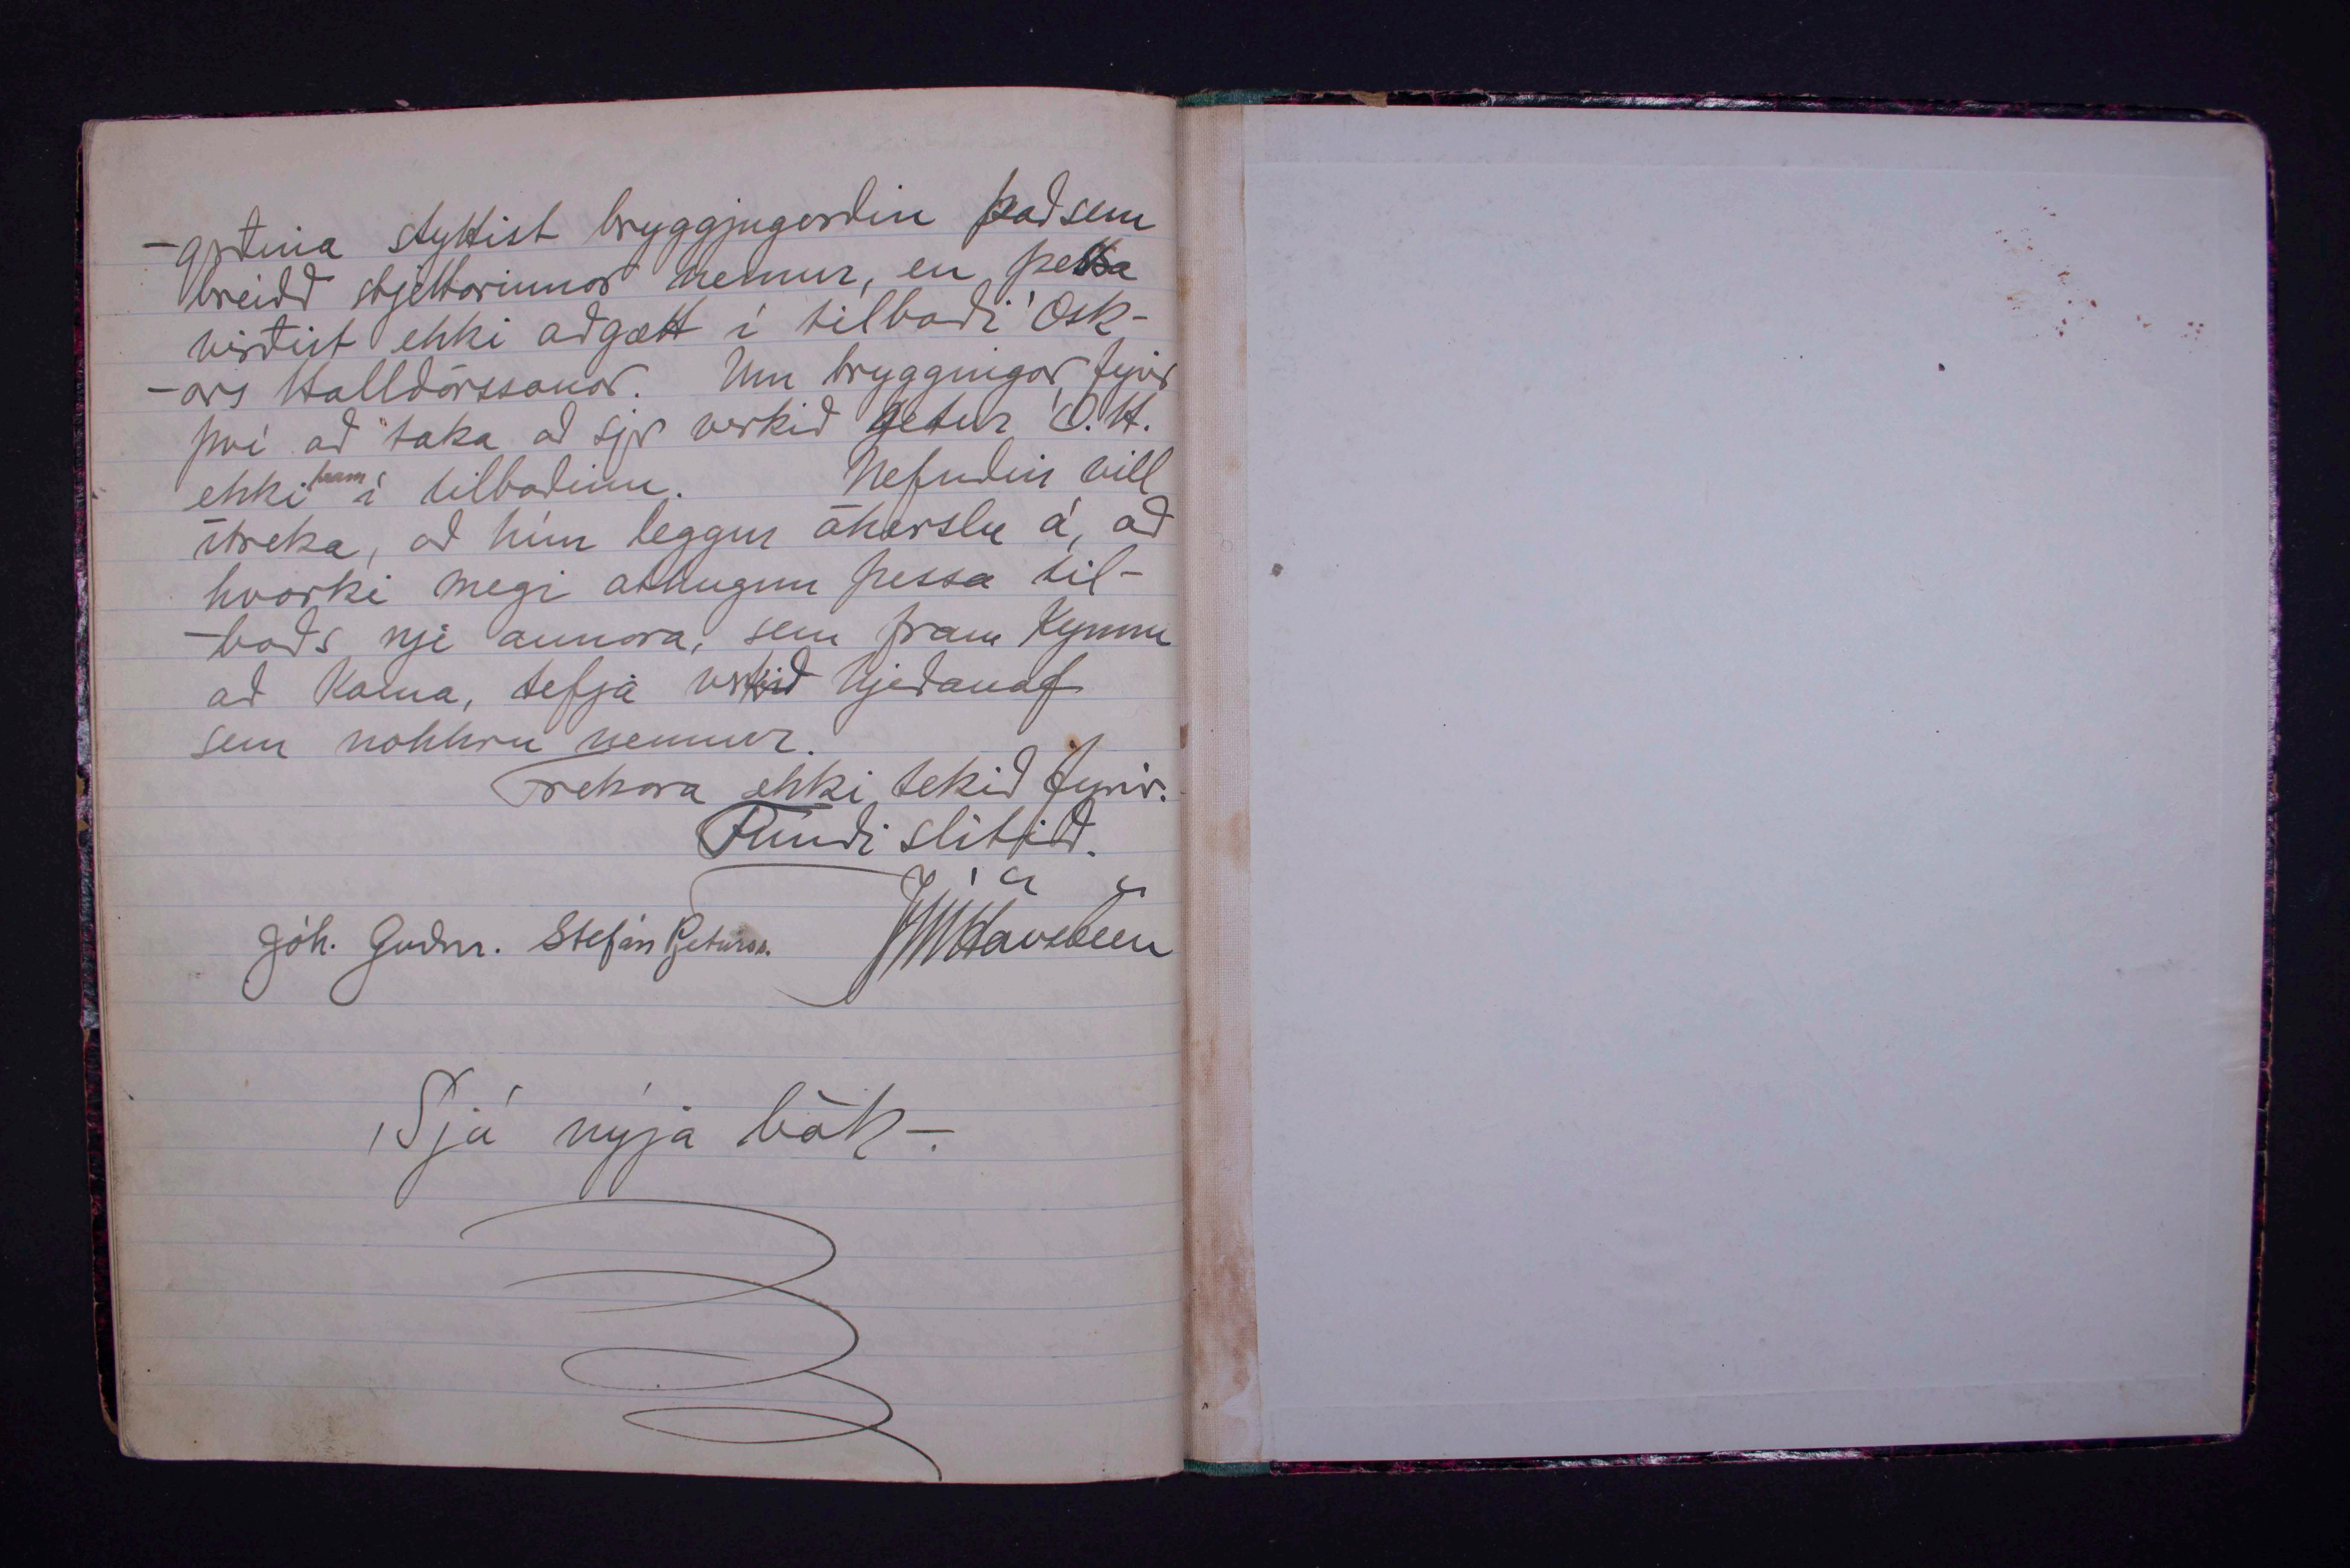 -gerðina styttist bryggjugerðin það sem
breidd stjettarinnar nemur, en þessa
virðist ekki aðgætt í tilboði Ósk-
-ars Halldórssonar. Um tryggingar fyrir
því að taka að sjer verkið getur Ó.H.
ekki fram í tilboðinu. Nefndin vill
ítreka, að hún leggur áherslu á, að
hvorki megi athugun þessa til-
-boðs nje annara, sem fram kynnu
að koma, tefja verkið hjeðanaf
sem nokkru nemur.
Frekara ekki tekið fyrir.
Fundi slitið.
Jóh. Guðm. Stefán Pjeturss. JHHavsteen
Sjá nýja bók-.